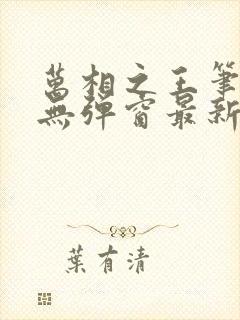 萬相之王筆
無彈窗最新
葉有清